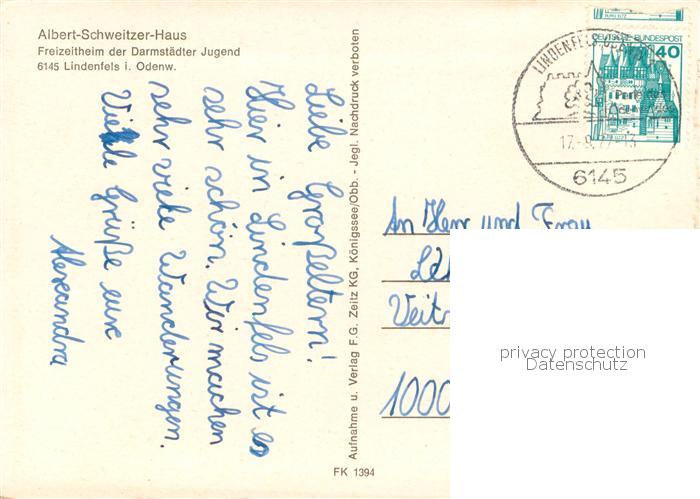 Albert-Schweitzer-Haus
Freizeitheim der Darmstädter Jugend
6145 Lindenfels i. Odenw.
Liebe Großeltern!
Hier in Lindenfels ist es
sehr schön. Wir machen
sehr viele Wanderungen.
Viele Grüße eure
Alexandra
Aufnahme u. Verlag F.G. Zeitz KG, Königssee/Obb. - Jegl. Nachdruck verboten
FK 1394
DEUTSCHE BUNDESPOST
40
LINDENFELS
6145
An Herr und Frau
Veit
1000
privacy protection
Datenschutz